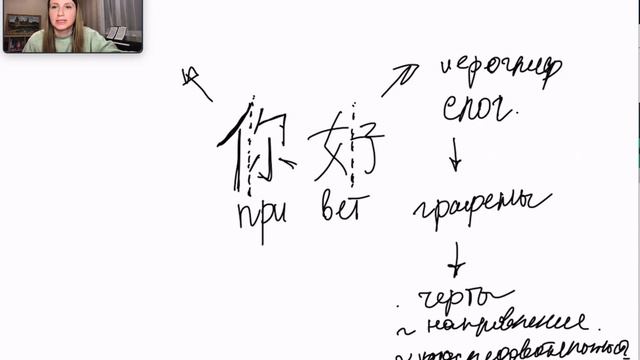 иероглиф
слог.
你好
при вет
графемы
черты
направление.